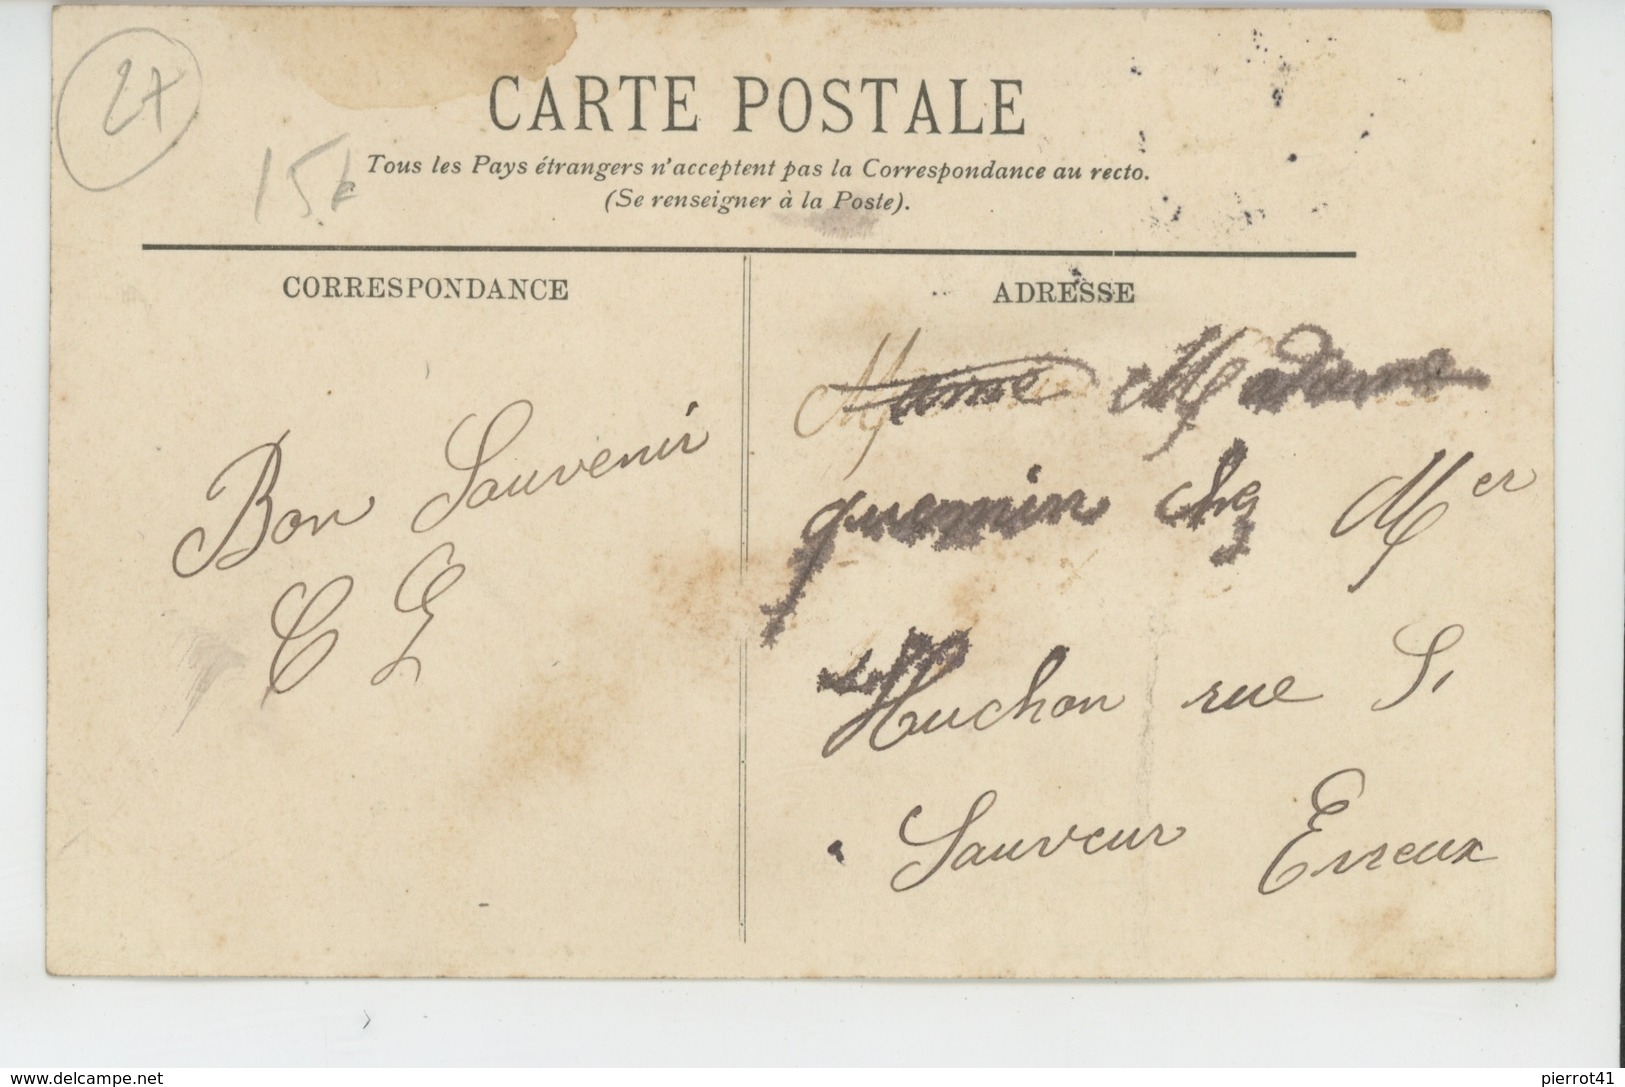 27
15€
CARTE POSTALE
Tous les Pays étrangers n'acceptent pas la Correspondance au recto.
(Se renseigner à la Poste).
CORRESPONDANCE
Bon Souvenir
C G
ADRESSE
Madame
quemin chez Mer
Huchon rue St
Sauveur Evreux
www.delcampe.net
pierrot41